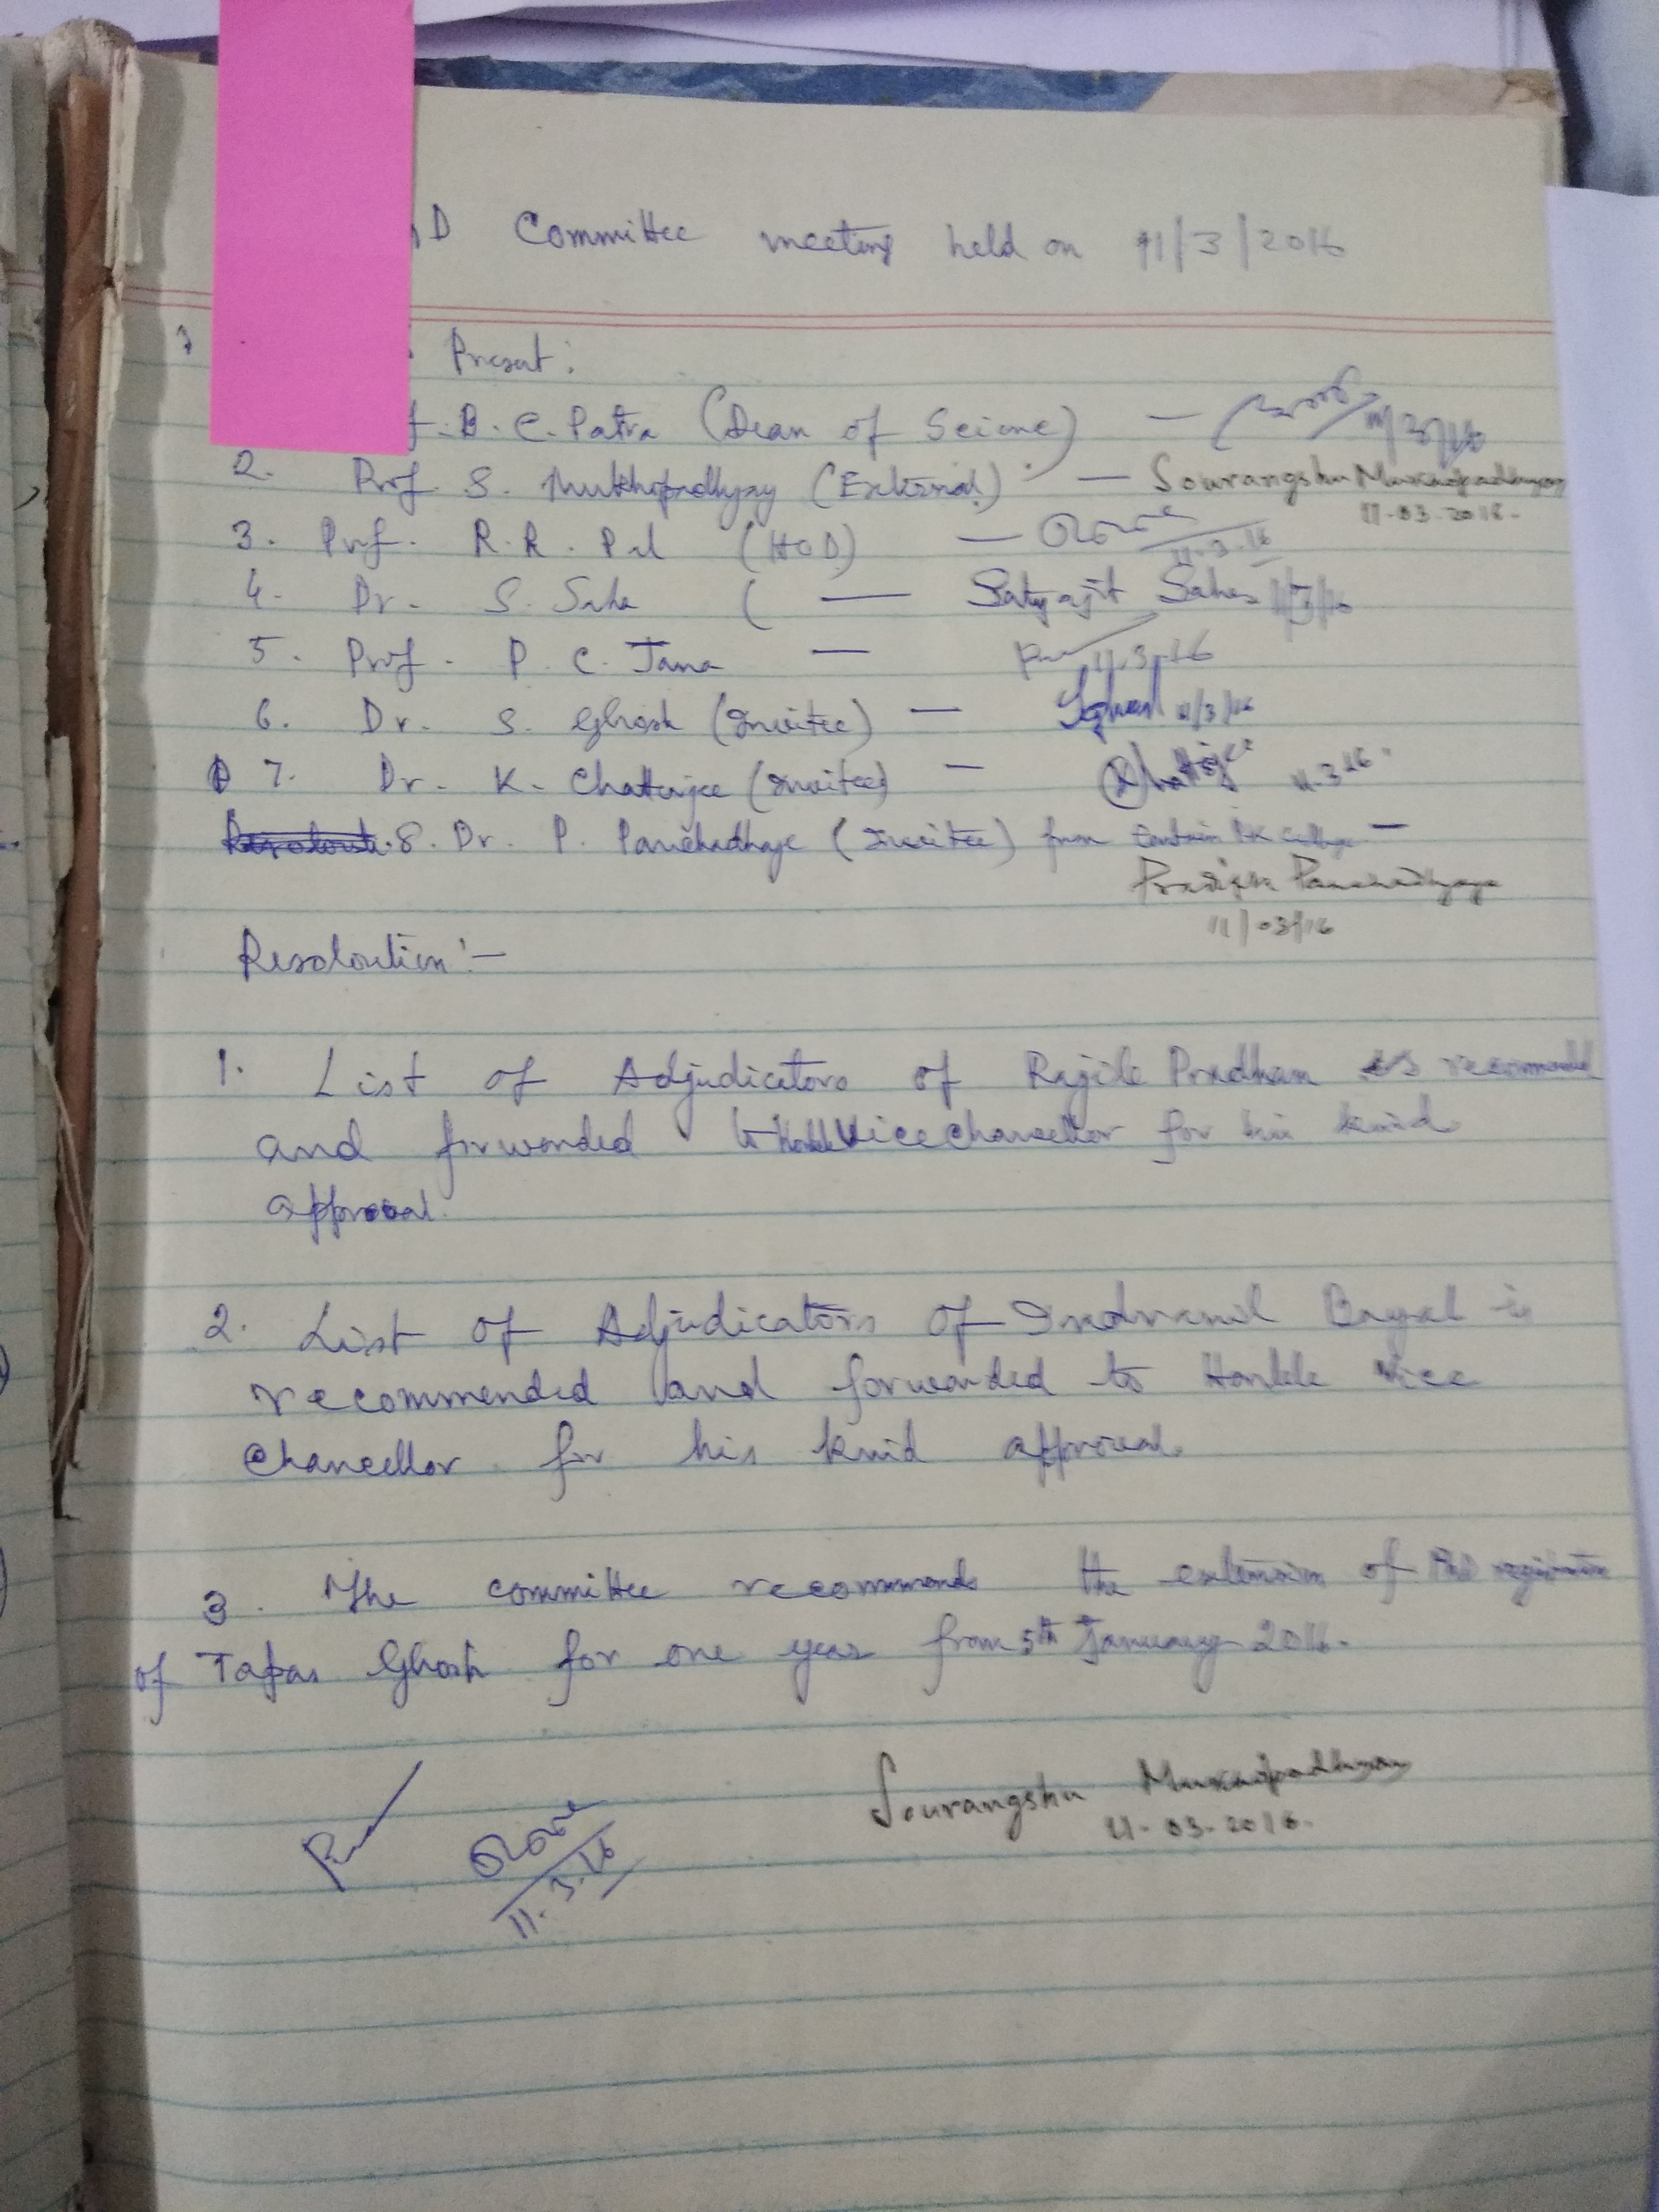 D Committee meeting held on 11/3/2016
Present:
f. B. C. Patra (Dean of Science) — 11/3/16
2. Prof. S. Mukhopadhyay (External) — Sourangshu Mukhopadhyay
11.03.2016.
3. Prof. R. R. Pal (HOD) — 11.3.16
4. Dr. S. Saha ( — Satyajit Saha 11/3/16
5. Prof. P. C. Jana — 11.3.16
6. Dr. S. Ghosh (Invitee) — 11/3/16
7. Dr. K. Chatterjee (Invitee) — KChatterjee 11.3.16.
8. Dr. P. Panchadhyayee (Invitee) from Contai PK College —
Pradipta Panchadhyayee
11/03/16
Resoloution:-
1. List of Adjudicators of Rajib Pradhan is recommended
and forwarded to Honble Vice Chancellor for his kind
approval.
2. List of Adjudicators of Indranil Bayal is
recommended and forwarded to Honble Vice
Chancellor for his kind approval.
3. The committee recommends the extension of PhD registration
of Tapas Ghosh for one year from 5th January 2016.
Sourangshu Mukhopadhyay
11.03.2016.
11.3.16